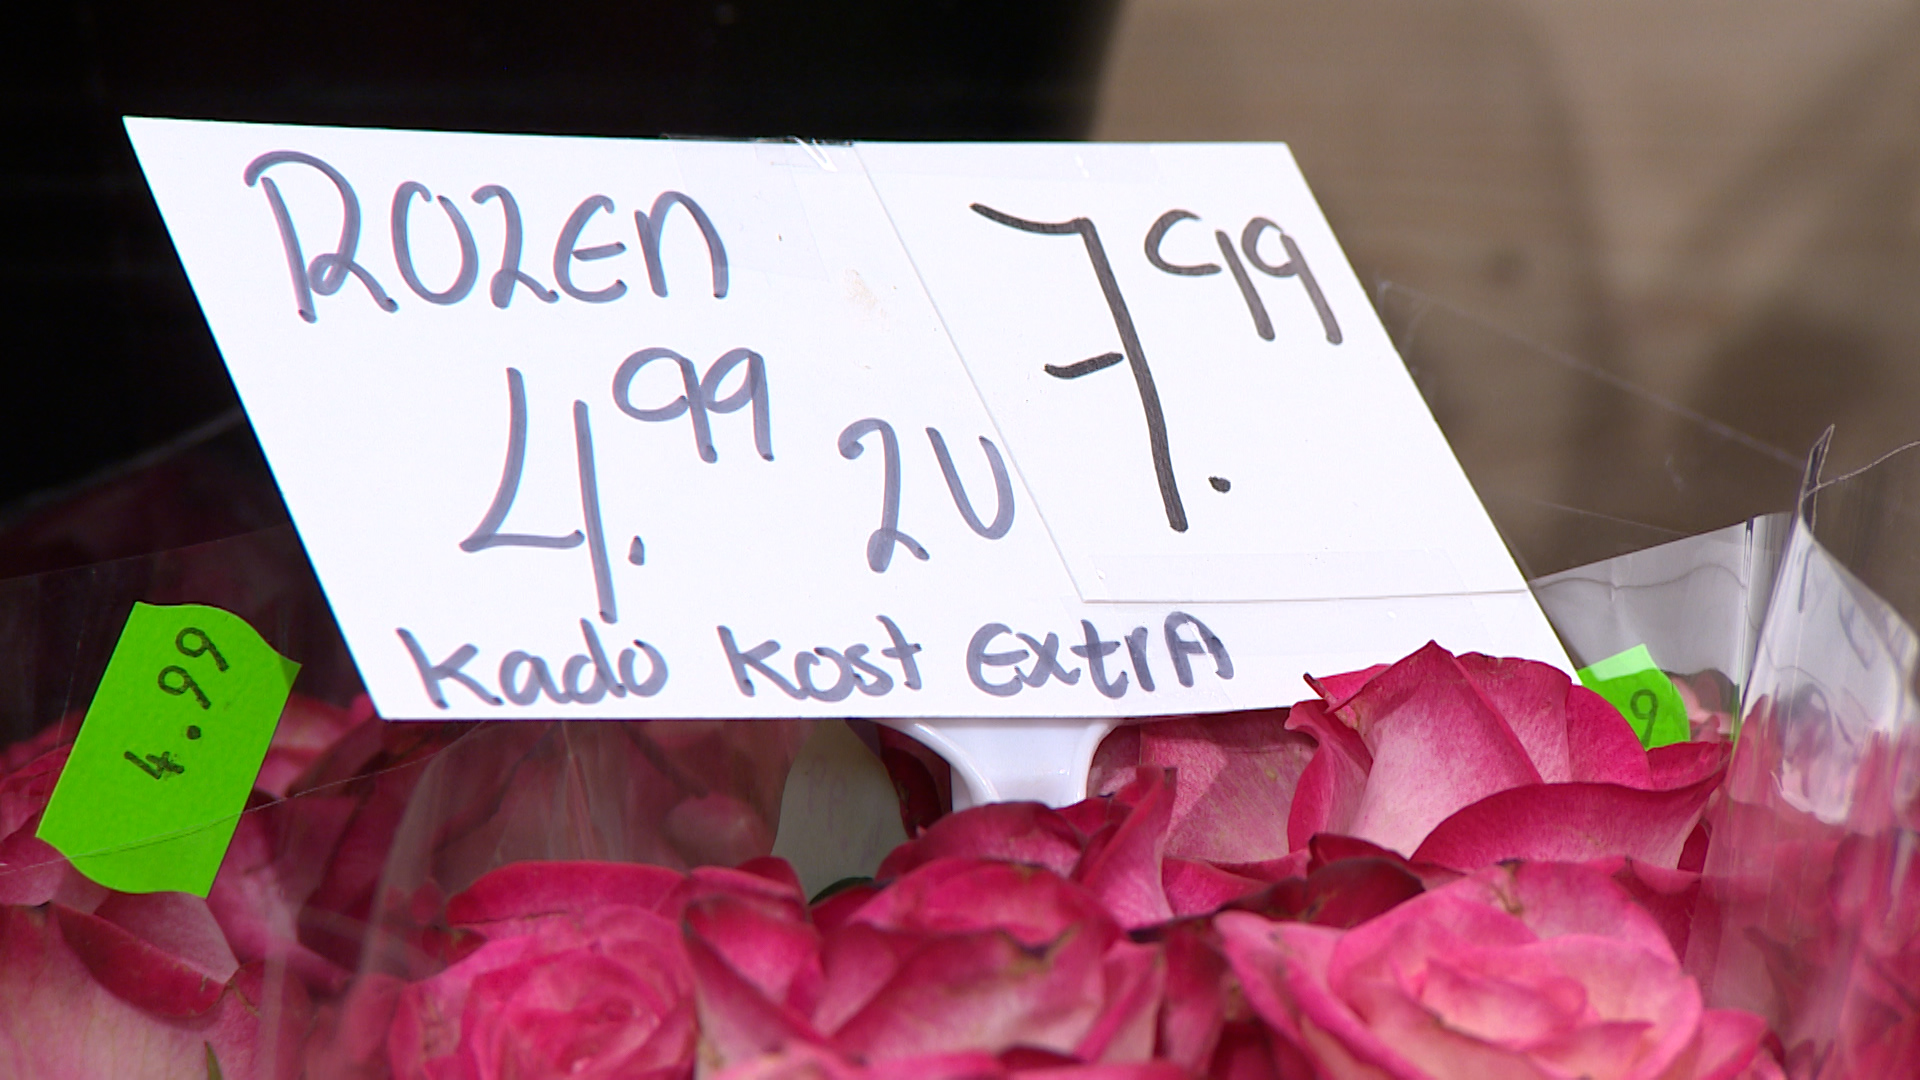 Rozen
4.99 2U 7.99
Kado kost Extra
4.99
9